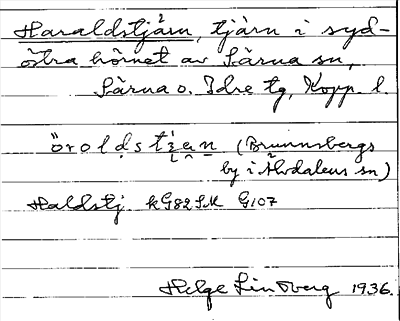 Haraldstjärn, tjärn i syd-
östra hörnet av Särna sn,
Särna o. Idre tg, Kopp. l.
öroldstjɛn (Brunnsbergs
by i Älvdalens sn)
Haldstj. kG82SM G107
Helge Lindberg 1936.